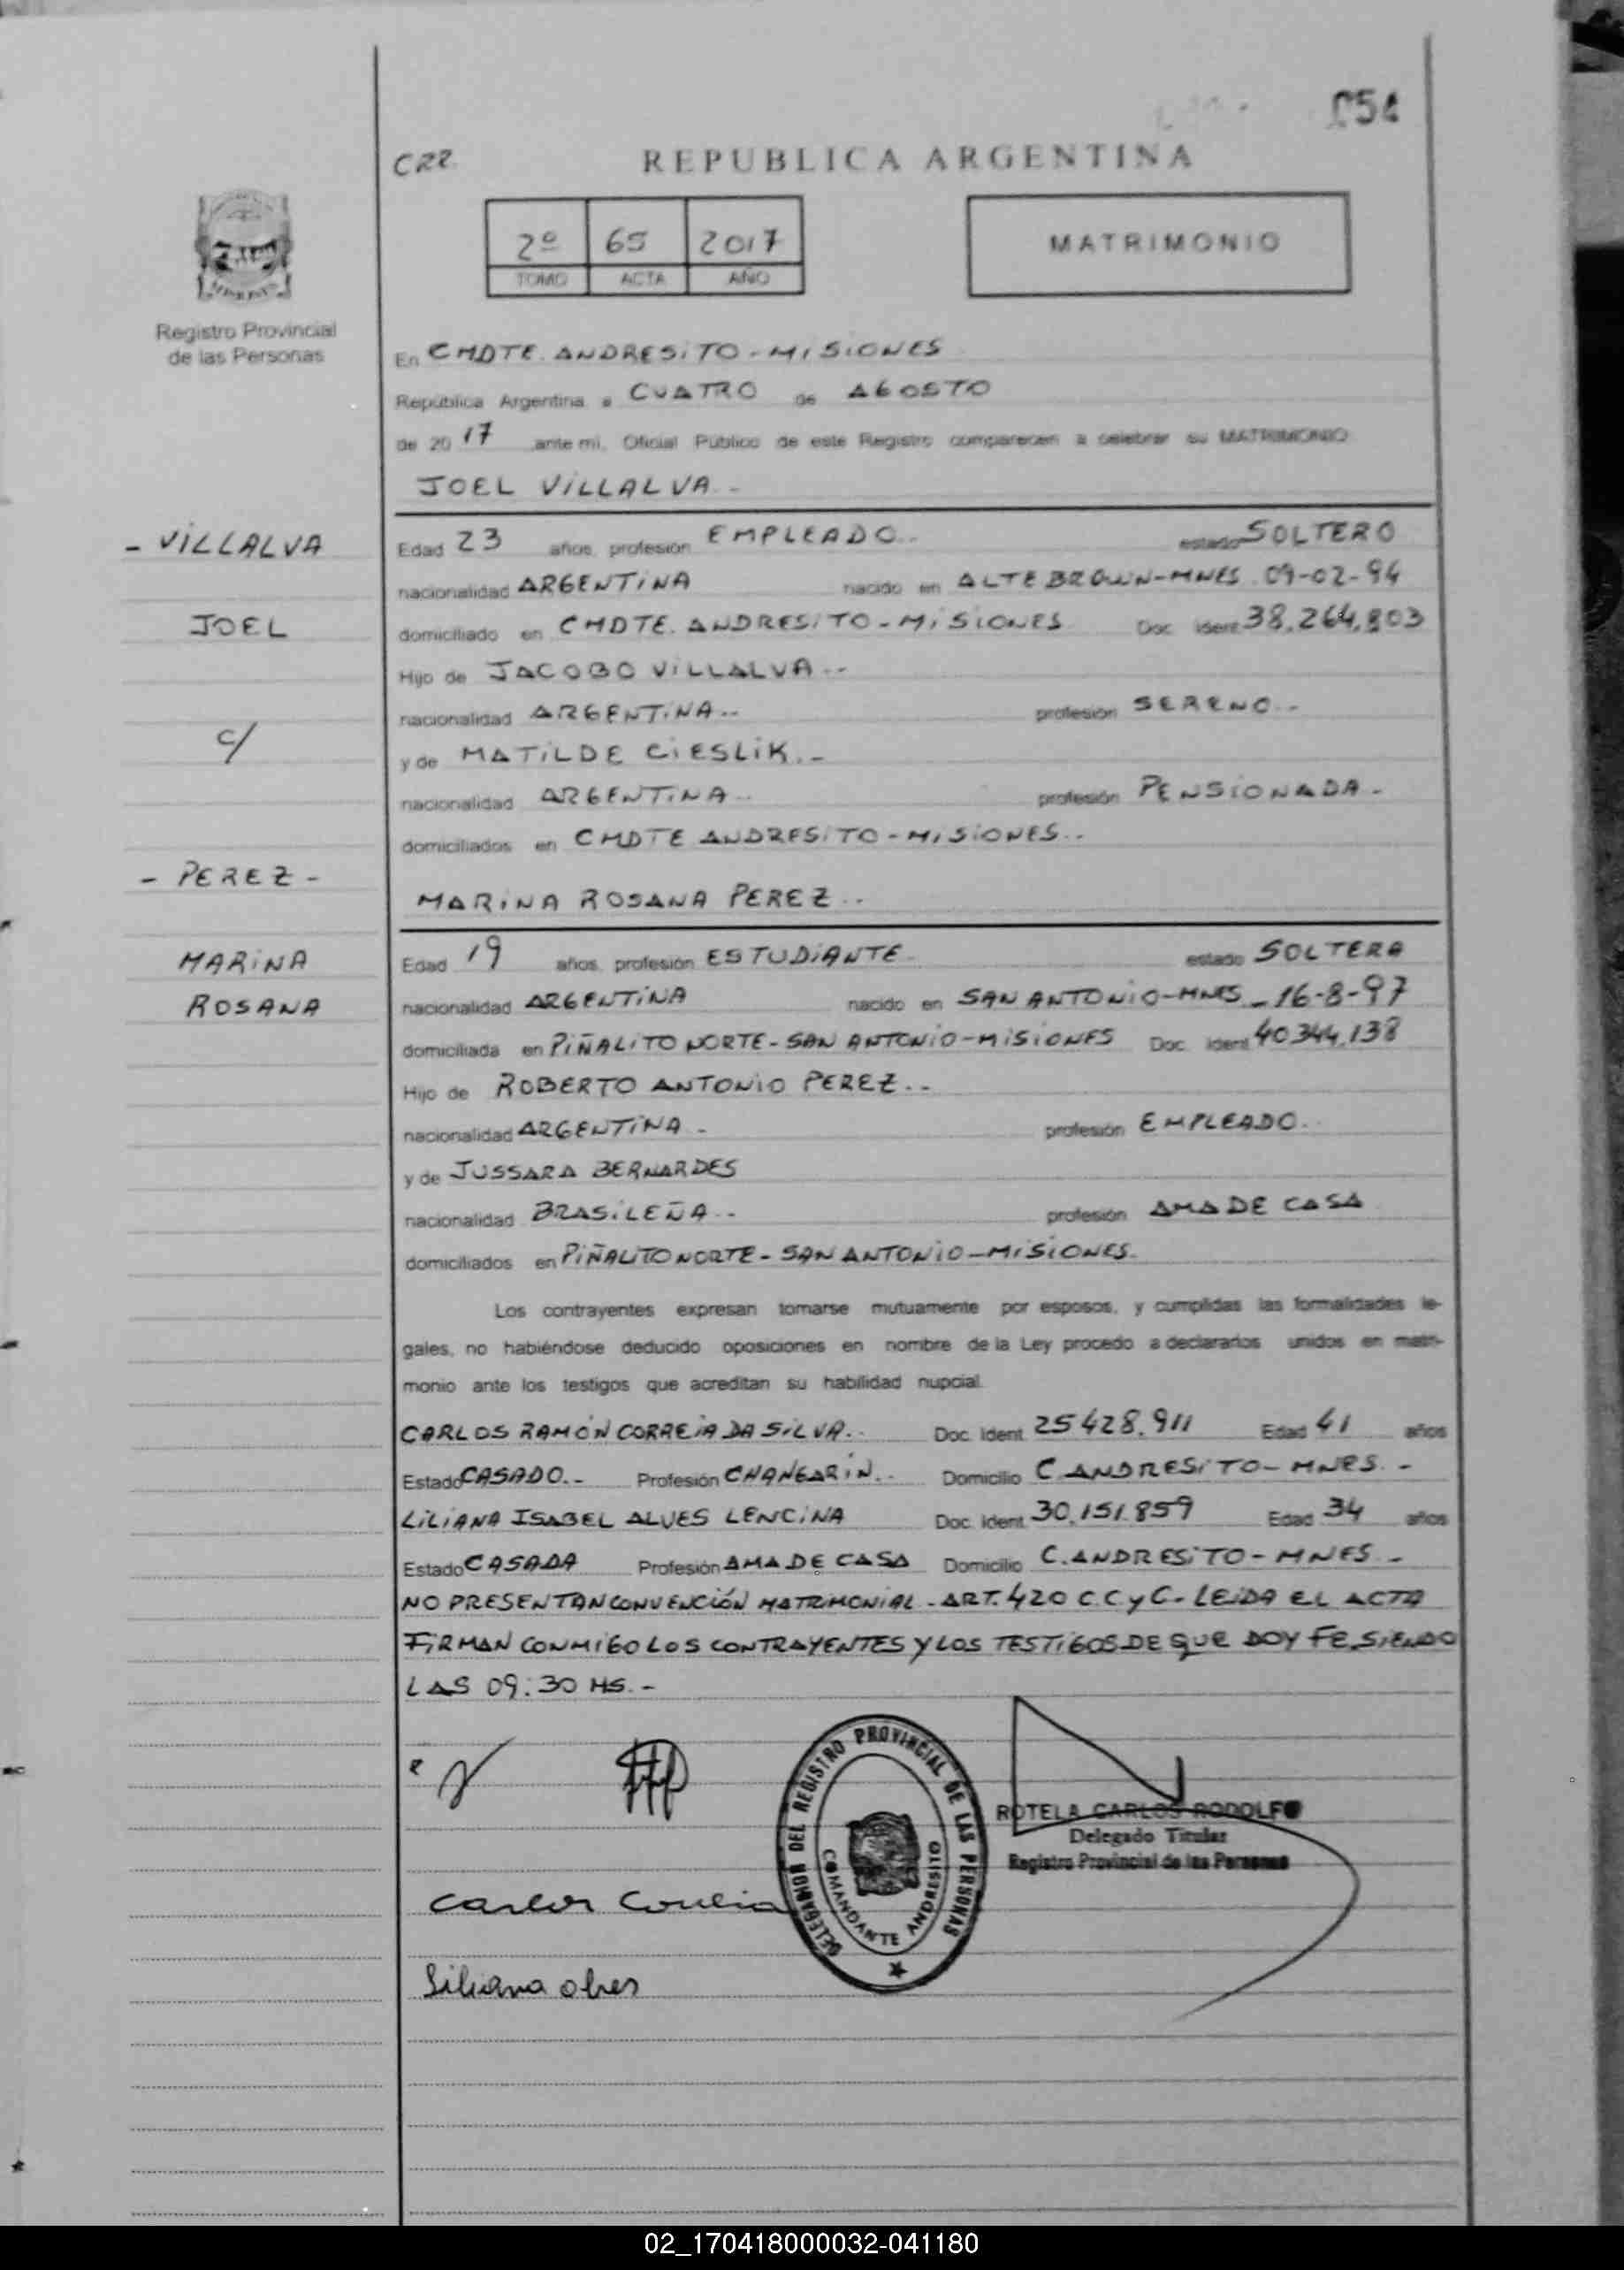 054
CRR
REPUBLICA ARGENTINA
2º 65 2017
TOMO ACTA AÑO
MATRIMONIO
Registro Provincial
de las Personas
En CMDTE. ANDRESITO - MISIONES
República Argentina a CUATRO de AGOSTO
de 20 17 ante mi, Oficial Público de este Registro comparecen a celebrar su MATRIMONIO
JOEL VILLALVA.-
- VILLALVA
JOEL
C/
- PEREZ -
MARINA
ROSANA
Edad 23 años, profesión EMPLEADO.- estado SOLTERO
nacionalidad ARGENTINA nacido en ALTE BROWN-MNES 09-02-94
domiciliado en CMDTE. ANDRESITO - MISIONES Doc. Ident 38.264.803
Hijo de JACOBO VILLALVA.-
nacionalidad ARGENTINA.- profesión SERENO.-
y de MATILDE CIESLIK.-
nacionalidad ARGENTINA.- profesión PENSIONADA.-
domiciliados en CMDTE ANDRESITO - MISIONES.-
MARINA ROSANA PEREZ.-
Edad 19 años, profesión ESTUDIANTE estado SOLTERA
nacionalidad ARGENTINA nacido en SAN ANTONIO-MNES - 16-8-97
domiciliada en PIÑALITO NORTE - SAN ANTONIO - MISIONES Doc. Ident 40.344.138
Hijo de ROBERTO ANTONIO PEREZ.-
nacionalidad ARGENTINA - profesión EMPLEADO.
y de JUSSARA BERNARDES
nacionalidad BRASILEÑA.- profesión AMA DE CASA
domiciliados en PIÑALITO NORTE - SAN ANTONIO - MISIONES.
Los contrayentes expresan tomarse mutuamente por esposos, y cumplidas las formalidades le-
gales, no habiéndose deducido oposiciones en nombre de la Ley procedo a declararlos unidos en matri-
monio ante los testigos que acreditan su habilidad nupcial.
CARLOS RAMÓN CORREIA DA SILVA.- Doc. Ident. 25428.911 Edad 41 años
Estado CASADO.- Profesión CHANGARIN.- Domicilio C ANDRESITO - MNES.-
LILIANA ISABEL ALVES LENCINA Doc. Ident. 30.151.859 Edad 34 años
Estado CASADA Profesión AMA DE CASA Domicilio C. ANDRESITO - MNES.-
NO PRESENTAN CONVENCIÓN MATRIMONIAL - ART. 420 C.C y C - LEIDA EL ACTA
FIRMAN CONMIGO LOS CONTRAYENTES Y LOS TESTIGOS DE QUE DOY FE, SIENDO
LAS 09:30 HS.-
DELEGACION DEL REGISTRO PROVINCIAL DE LAS PERSONAS
COMANDANTE ANDRESITO
ROTELA CARLOS RODOLFO
Delegado Titular
Registro Provincial de las Personas
Carlos Correia
Liliana Alves
02_170418000032-041180